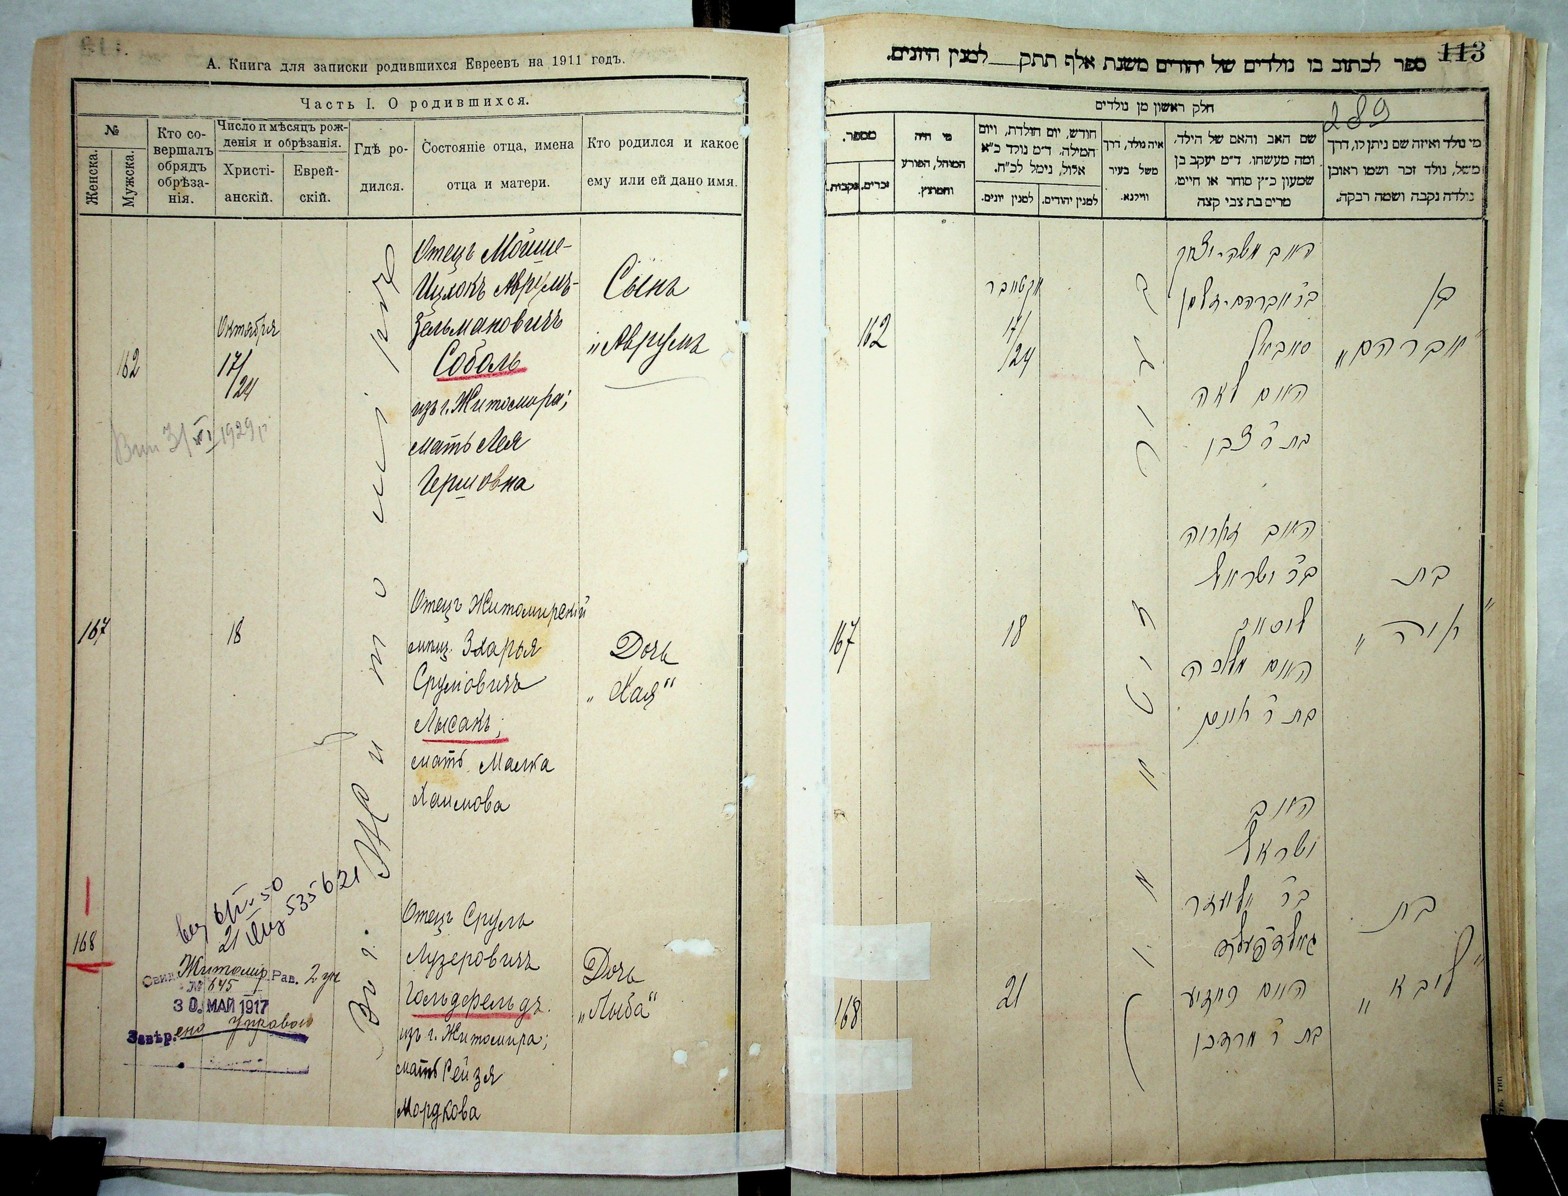 А. Книга для записки родившихся Евреевъ на 1911 годъ.
Часть I. О родившихся.
№
Женска.
Мужска.
Кто совершалъ обрядъ обрѣзанія.
Число и мѣсяцъ рожденія и обрѣзанія.
Христіанскій.
Еврейскій.
Гдѣ родился.
Состояніе отца, имена отца и матери.
Кто родился и какое ему или ей дано имя.
Отецъ Мойше-
Ицлокъ Аврумъ-
Зельмановичъ
Соболь
изъ г. Житомира;
мать Лея
Гершовна
Сынъ
„Аврумъ
162
Октября
17/24
31/XI 1929 г
167
18
Отецъ Житомирскій
мѣщ. Зхарья
Сруловичъ
Лысакъ;
мать Малка
Хаимова
Дочь
„Хая"
168
Отецъ Сруль
Лузеровичъ
Гольдфельдъ.
изъ г. Житомира;
мать Рейзя
Мордкова
Дочь
„Лыба"
Житомир. Рав.
№ 645
30. МАЙ 1917
Завѣр.
113
ספר לכתוב בו נולדים של יהודים משנת אלף תתק__למנין היונים.
289
חלק ראשון מן נולדים
מי נולד ואיזה שם ניתן לו, דרך משל, נולד זכר ושמו ראובן נולדה נקבה ושמה רבקה.
שם האב והאם של הילד, ומה מעשהו. ד״מ יעקב בן שמעון כ״ץ סוחר או חיים. מרים בת צבי קצה
איה נולד, דרך משל בעיר ווילנא.
חודש, יום הולדת, ויום המילה. ד״מ נולד כ״א אלול, נימל לכ״ח.
למנין יהודים.
למנין יונים.
מי היה המוהל, הפורע והמוצץ
מספר.
זכרים.
נקבות.
האב משה-יצחק
ב״ר אברהם-זלמן
סאבאל
האם לאה
בת ר׳ צבי
בן
„אברהם"
אקטאבר
17/24
162
האב זכריה
ב״ר ישראל
ליסאק
האם מלכה
בת ר׳ חיים
בת
„חיה"
18
167
האב
ישראל
ב״ר אליעזר
גאלדפעלד
האם רייזע
בת ר׳ מרדכי
בת
„ליבא"
21
168